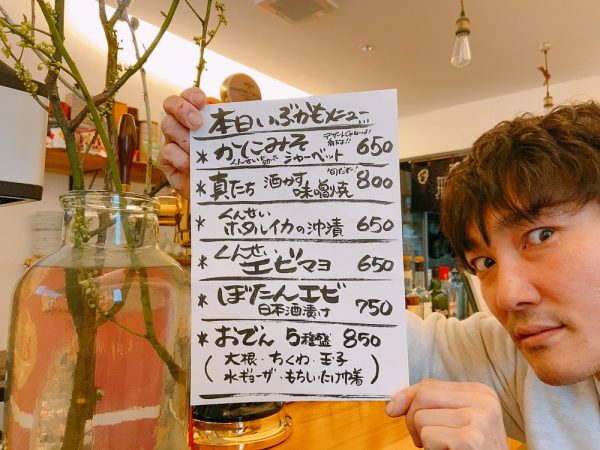 本日いぶかもメニュー
デザートじゃないよ!
* かにみそ 650
くんせい シャーベット
* 真たち 酒かす 800
味噌焼
* くんせい
ホタルイカの沖漬 650
* くんせい
エビマヨ 650
* ぼたんエビ 750
日本酒漬け
* おでん 5種盛 850
(大根・ちくわ・玉子
水ギョーザ・もちいたけ巾着)